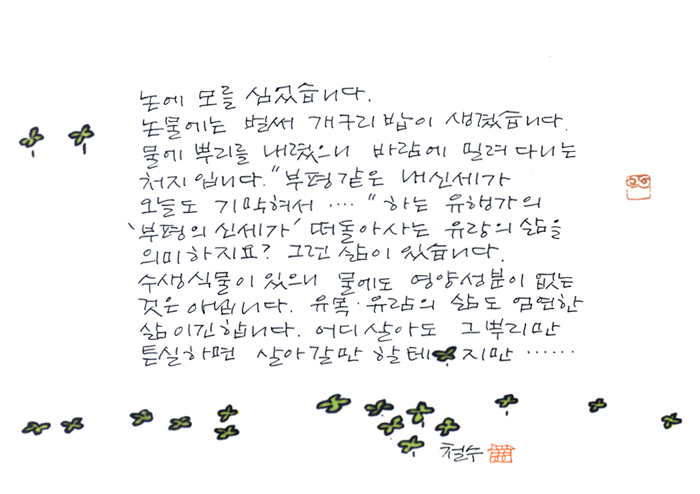 논에 모를 심었습니다.
논물에는 벌써 개구리밥이 생겼습니다.
물에 뿌리를 내렸으니 바람에 밀려 다니는
처지입니다. "부평같은 내신세가
오늘도 기막혀서 ····" 하는 유행가의
'부평의 신세가' 떠돌아사는 유랑의 삶을
의미하지요? 그런 삶이 있습니다.
수생식물이 있으니 물에도 영양성분이 없는
것은 아닙니다. 유목·유람의 삶도 엄연한
삶이긴합니다. 어디살아도 그뿌리만
튼실하면 살아갈만 할테지만 ······
철수